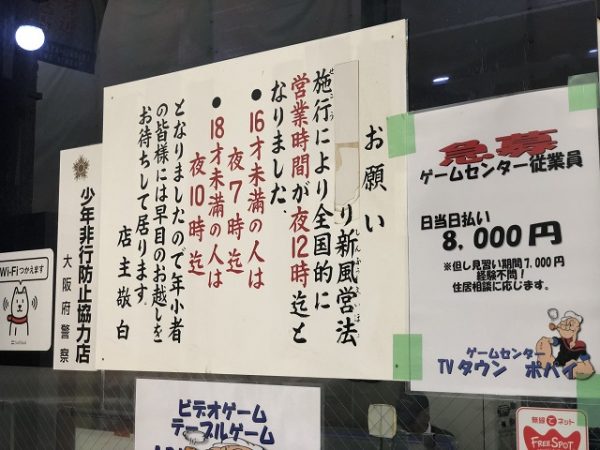 お願い
り新風営法
しんふうえいほう
施行により全国的に
せこう
営業時間が夜12時迄と
なりました。
●16才未満の人は
夜7時迄
●18才未満の人は
夜10時迄
となりましたので年少者
の皆様には早目のお越しを
お待ちして居ります。
店主敬白
少年非行防止協力店
大阪府警察
Wi-Fiつかえます
SoftBank
急募
ゲームセンター従業員
日当日払い
8,000円
※但し見習い期間7,000円
経験不問!
住居相談に応じます。
ゲームセンター
TVタウン ポパイ
ビデオゲーム
テーブルゲーム
無線でネット
FREESPOT